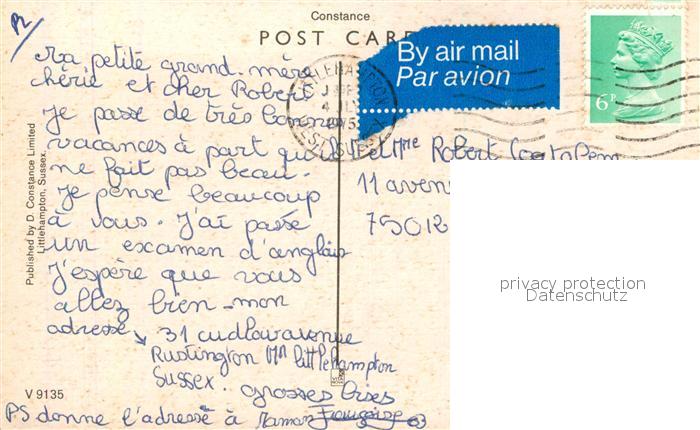 Constance
POST CAR
By air mail
Par avion
6P
Ma petite grand-mère
chérie et cher Robert
Je passe de très bonnes
vacances à part qu'il
ne fait pas beau.
Je pense beaucoup
à vous. J'ai passé
un examen d'anglais
J'espère que vous
allez bien - mon
adresse
31 cudlow avenue
Rustington Nr littlehampton
Sussex. grosses bises
PS donne l'adresse à Maman
et Mme Robert
11 aven
75012
Published by D. Constance Limited
Littlehampton, Sussex.
V 9135
privacy protection
Datenschutz